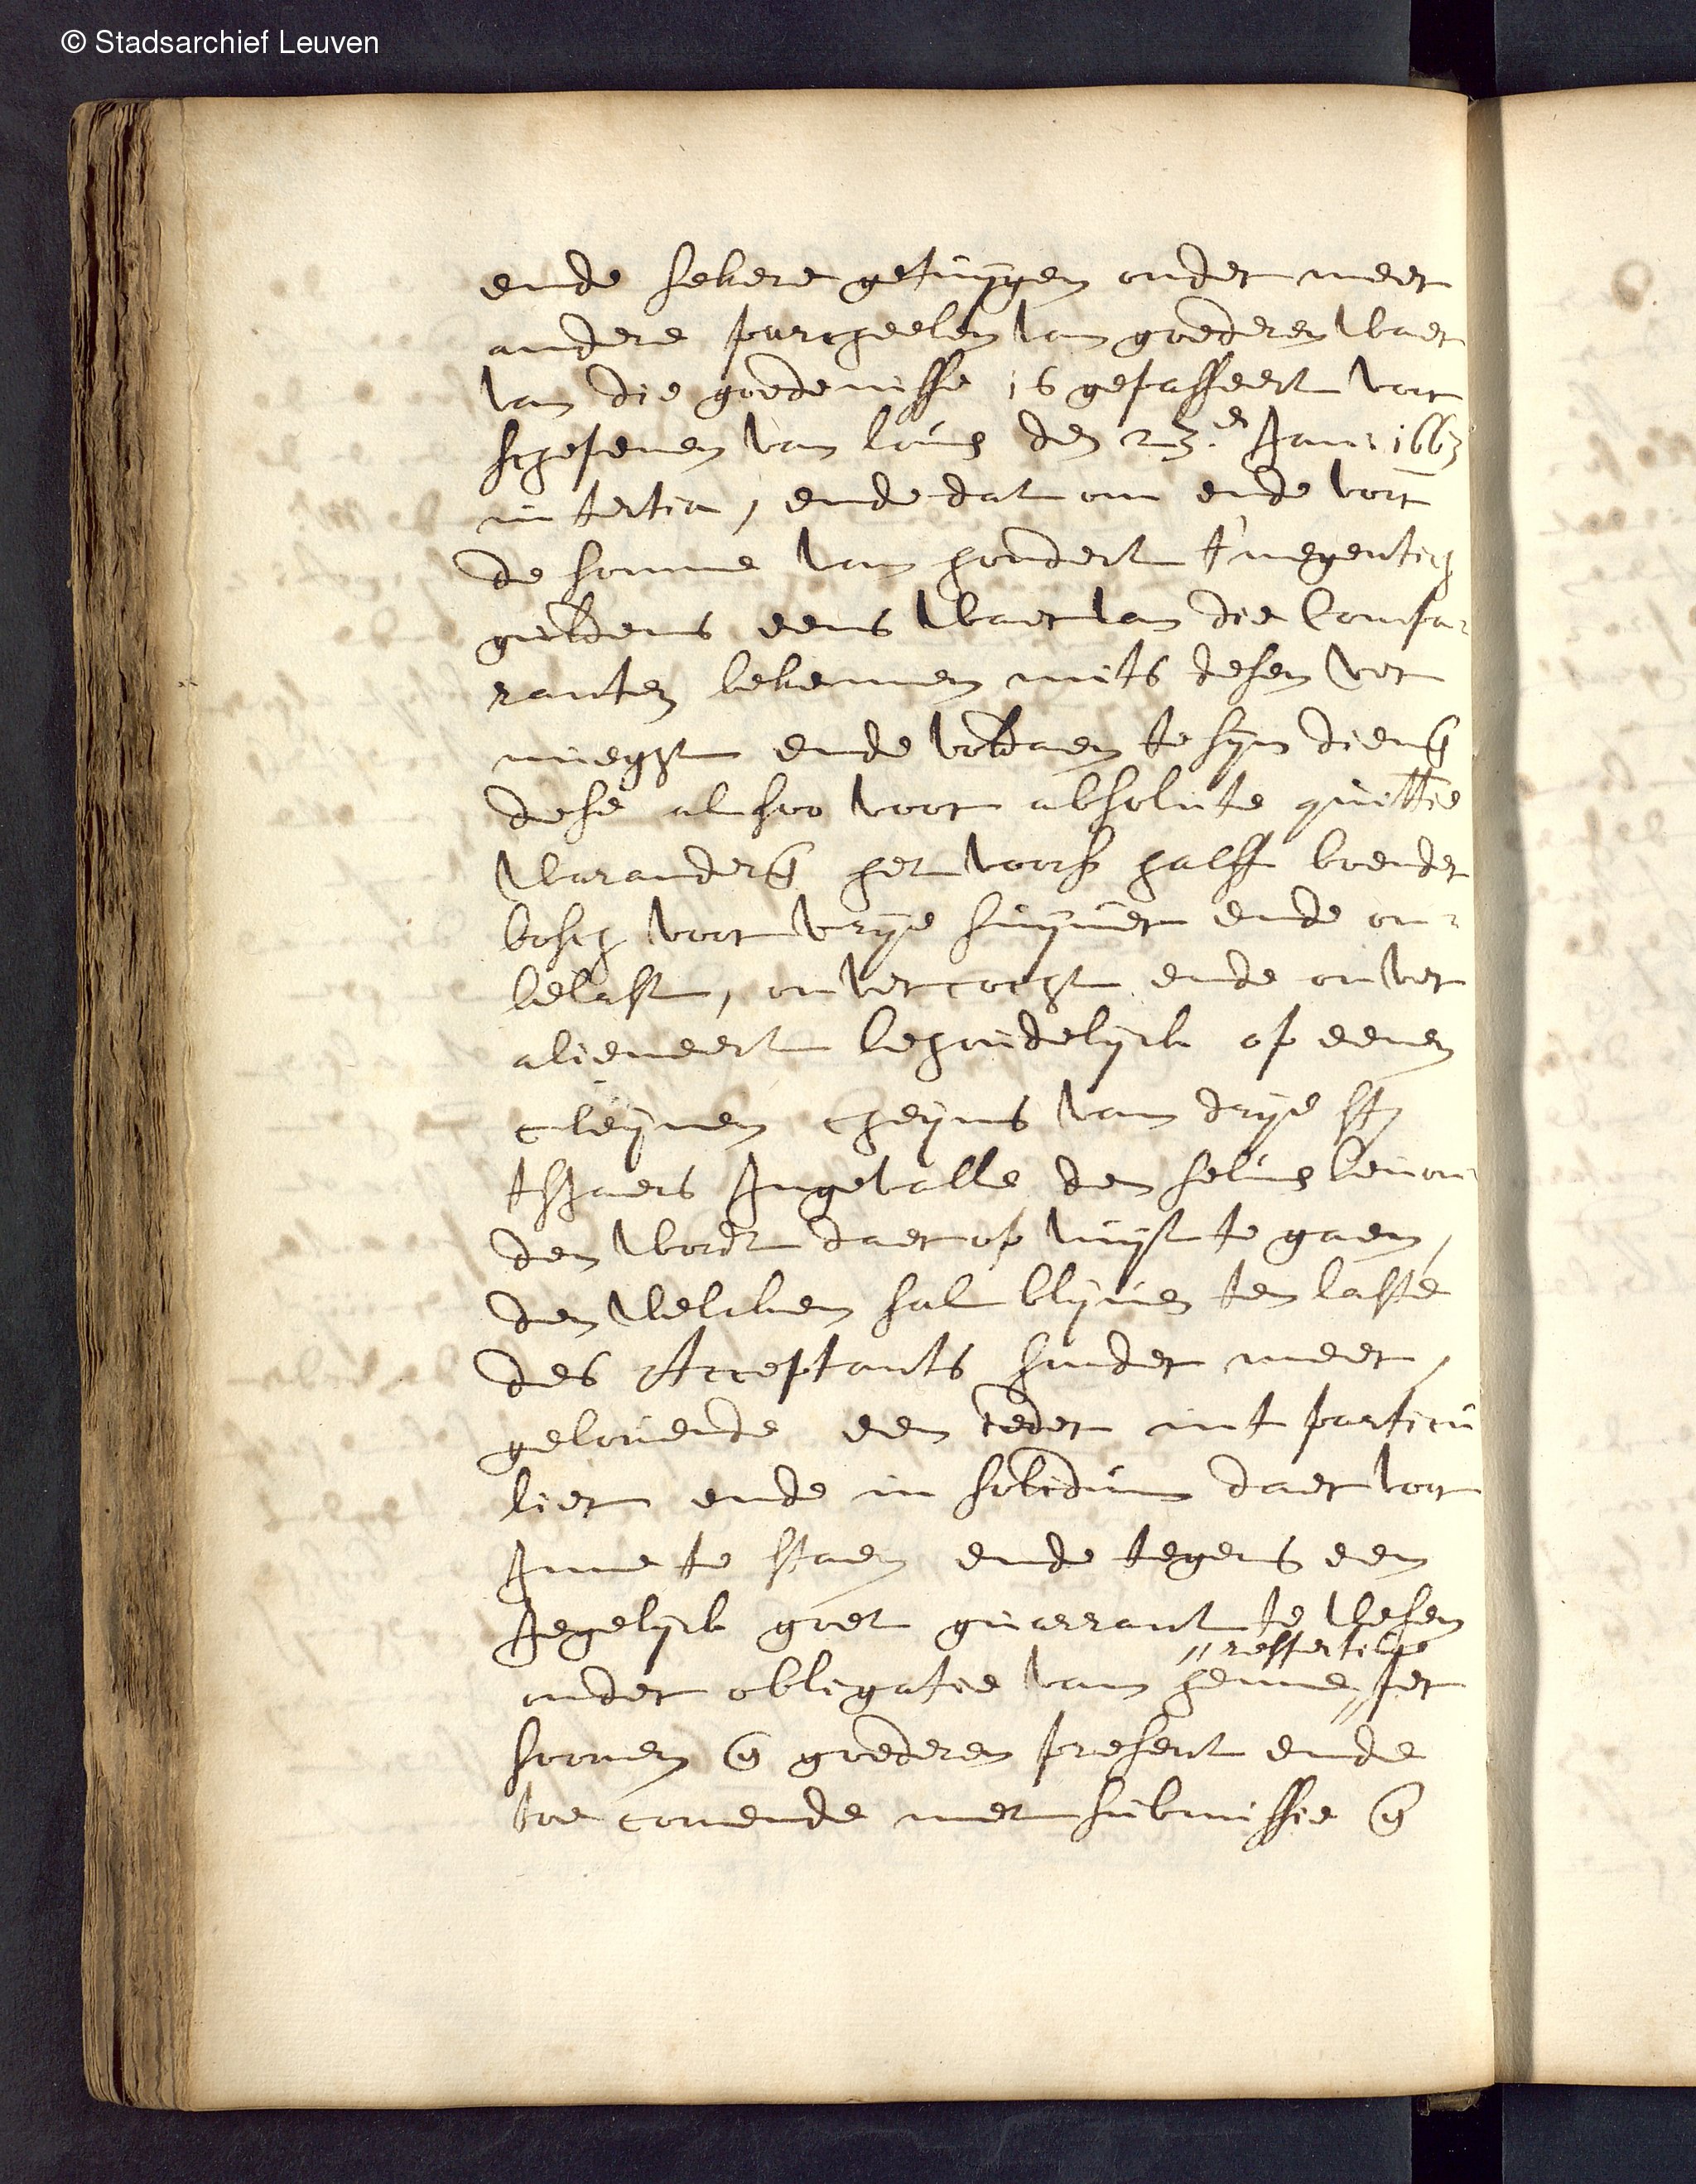 © Stadsarchief Leuven
ende sekere getuijgen onder meer
andere parcheelen van goederen waer
van die goedenisse is gepasseert voor
schepenen van loven den 23.en Jan: 1663
in tertia, ende dat om ende voor
de somme van hondert t'negentich
guldens eens waervan die Compa-
ranten bekennen mits desen ver
nueght ende voldaen te sijn diens
dese alsoo voor absolute quittie
Waranderen het voors halff boender
bosch voor vrije suijver ende on-
belast, onvercocht ende onver
alieneert behoudelijck op eenen
cleijnen cheijns van drije st
tsjaers Ingevalle den selven bevon
den wordt daer op uuijt te gaen,
den welcken sal blijven ten laste
des Acceptants sonder meer,
gelovende een ieder int particu
lier ende in solidum daer voor
Inne te staen ende tegens een
Iegelijck goet guarrant te wesen
respective
onder obligatie van henne per
soonen en goederen present ende
toecomende met submissie en